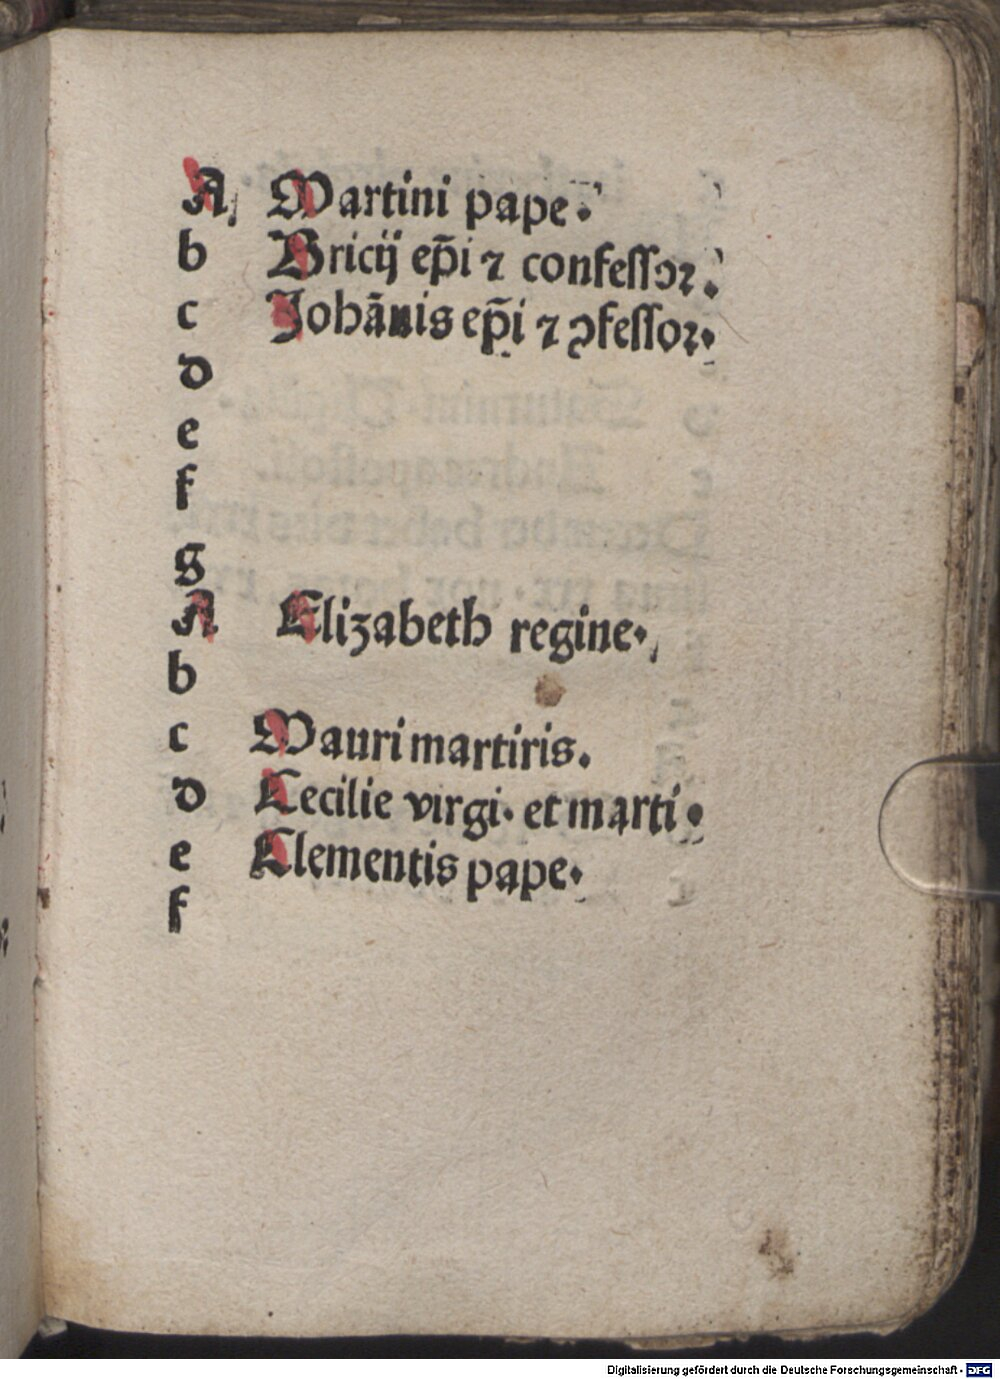 A Martini pape.
b Bricij ep̃i ⁊ confessoꝛ.
c Johãnis ep̃i ⁊ ꝯfessoꝛ.
d
e
f
g
A Elizabeth regine.
b
c Mauri martiris.
d Cecilie virgi. et marti.
e Clementis pape.
f
Digitalisierung gefördert durch die Deutsche Forschungsgemeinschaft - DFG